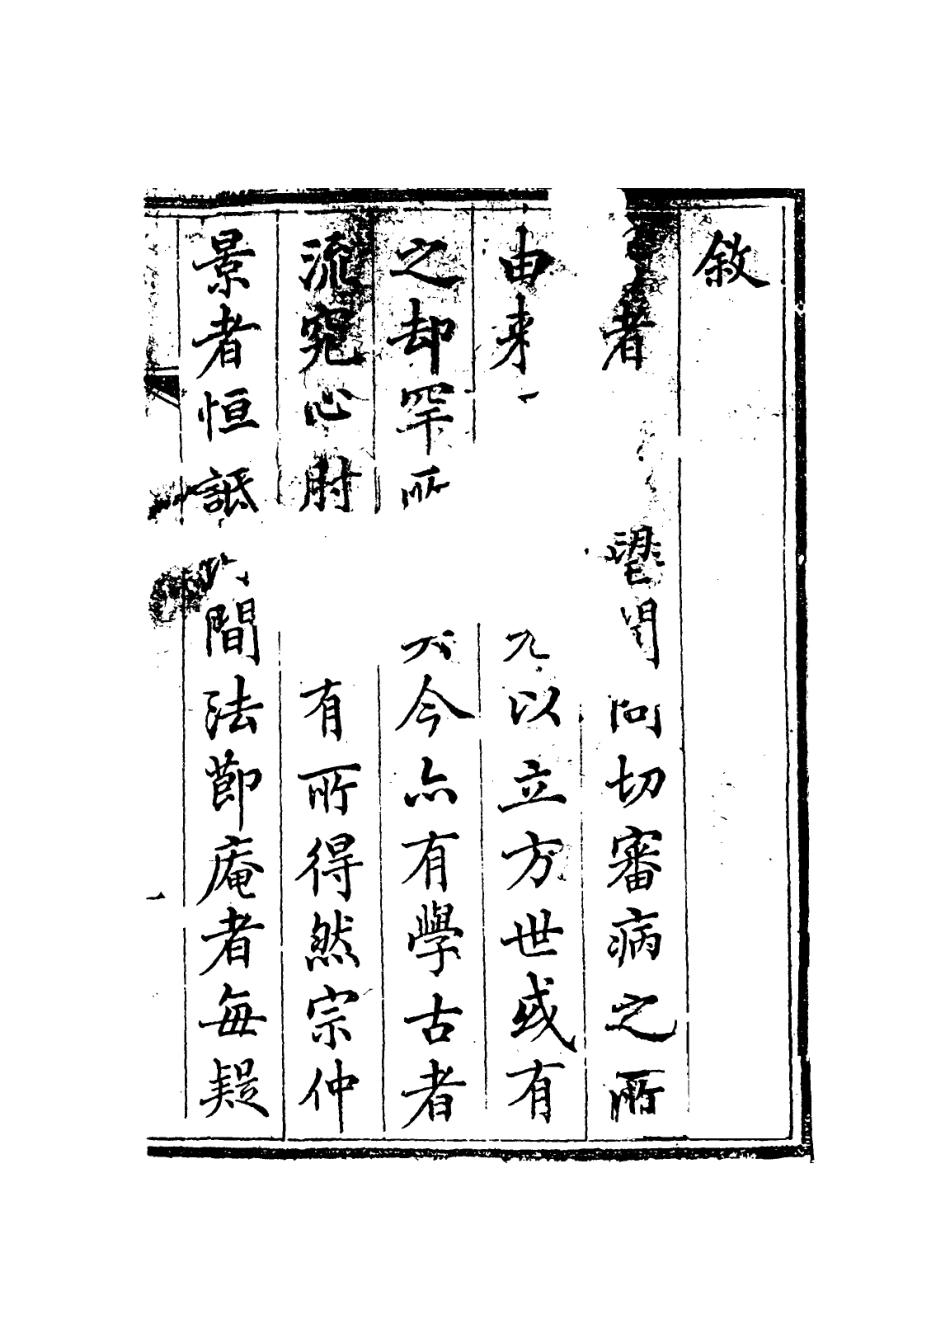 敘
者望聞問切審病之所
由来一以立方世或有
之却罕所今亦有學古者
流究心肘有所得然宗仲
景者恒詆河間法節庵者每疑